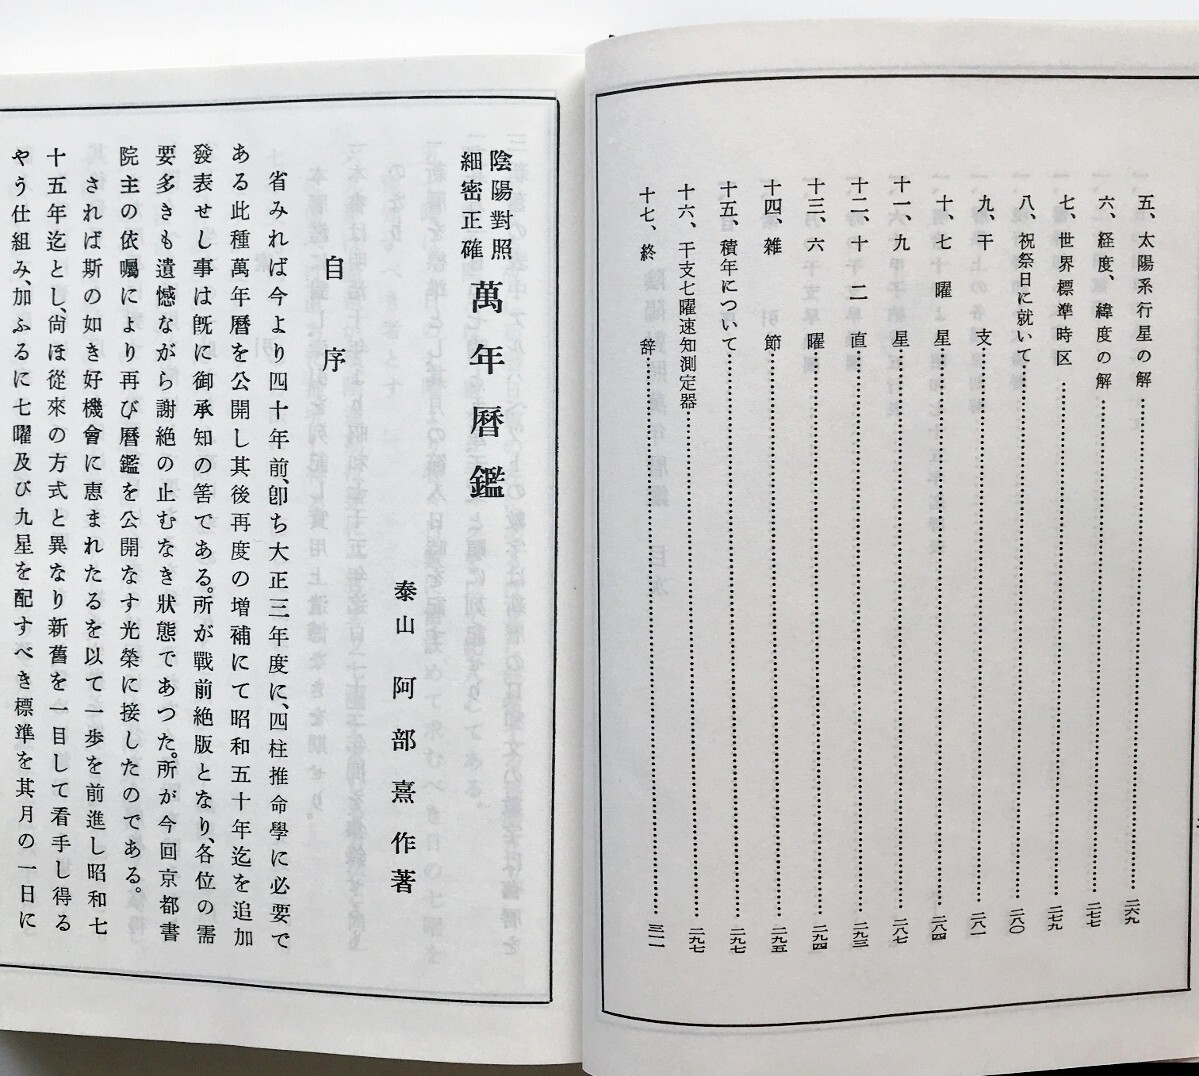 五、太陽系行星の解……二六九
六、経度、緯度の解……二七七
七、世界標準時区……二七九
八、祝祭日に就いて……二八〇
九、干支……二八一
十、七曜星……二八四
十一、九星……二八七
十二、十二直……二九三
十三、六曜……二九四
十四、雑節……二九五
十五、積年について……二九七
十六、干支七曜速知測定器……二九七
十七、終辞……三一一
陰陽對照
細密正確
萬年曆鑑
泰山 阿部熹作著
自序
省みれば今より四十年前、卽ち大正三年度に、四柱推命學に必要で
ある此種萬年曆を公開し其後再度の増補にて昭和五十年迄を追加
發表せし事は旣に御承知の筈である。所が戰前絶版となり、各位の需
要多きも遺憾ながら謝絶の止むなき狀態であつた。所が今回京都書
院主の依囑により再び曆鑑を公開なす光榮に接したのである。
されば斯の如き好機會に恵まれたるを以て一歩を前進し昭和七
十五年迄とし、尙ほ從來の方式と異なり新舊を一目して看手し得る
やう仕組み、加ふるに七曜及び九星を配すべき標準を其月の一日に